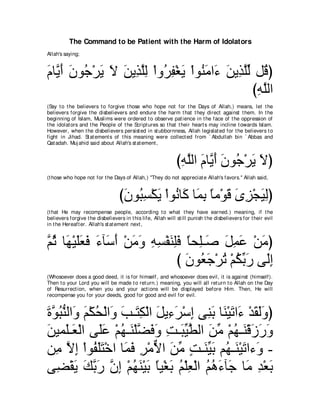 The Command to be Patient with the Harm of Idolators
Allah's saying;
﴿قُل لِّلَّذِينَ ءَامَنُواْ يَغْفِرُواْ لِلَّذِينَ لاَ يَرْجُونَ أَيَّامَ
اللَّهِ﴾
(Say to the believers to forgive those who hope not for the Days of Allah,) means, let the
believers forgive the disbelievers and endure the harm that they direct against them. In the
beginning of Islam, Muslims were ordered to observe patience in the face of the oppression of
the idolators and the People of the Scriptures so that their hearts may incline towards Islam.
However, when the disbelievers persisted in stubbornness, Allah legislated for the believers to
fight in Jihad. Statements of this meaning were collected from `Abdullah bin `Abbas and
Qatadah. Mujahid said about Allah's statement,
﴿لاَ يَرْجُونَ أَيَّامَ اللَّهِ﴾
(those who hope not for the Days of Allah,) "They do not appreciate Allah's favors." Allah said,
﴿لِيَجْزِىَ قَوْماً بِمَا كَانُواْ يَكْسِبُونَ﴾
(that He may recompense people, according to what they have earned.) meaning, if the
believers forgive the disbelievers in this life, Allah will still punish the disbelievers for their evil
in the Hereafter. Allah's statement next,
﴿مَنْ عَمِلَ صَـلِحاً فَلِنَفْسِهِ وَمَنْ أَسَآءَ فَعَلَيْهَا ثُمَّ
إِلَى رَبِّكُمْ تُرْجَعُونَ ﴾
(Whosoever does a good deed, it is for himself, and whosoever does evil, it is against (himself).
Then to your Lord you will be made to return.) meaning, you will all return to Allah on the Day
of Resurrection, when you and your actions will be displayed before Him. Then, He will
recompense you for your deeds, good for good and evil for evil.
﴿وَلَقَدْ ءَاتَيْنَا بَنِى إِسْرَءِيلَ الْكِتَـبَ وَالْحُكْمَ وَالنُّبُوَّةَ
وَرَزَقْنَـهُمْ مِّنَ الطَّيِّبَـتِ وَفَضَّلْنَـهُمْ عَلَى الْعَـلَمينَ
- وَءاتَيْنَـهُم بَيِّنَـتٍ مِّنَ الاٌّمْرِ فَمَا اخْتَلَفُواْ إِلاَّ مِن
بَعْدِ مَا جَآءَهُمُ الْعِلْمُ بَغْياً بَيْنَهُمْ إِنَّ رَبَّكَ يَقْضِى